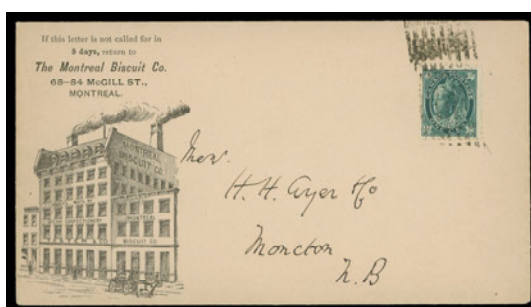 If this letter is not called for in
5 days, return to
The Montreal Biscuit Co.
68–84 McGILL ST.,
MONTREAL.
MONTREAL
BISCUIT CO.
MONTREAL
BISCUIT CO
Mess.
H. H. Ayer & Co
Moncton
N. B